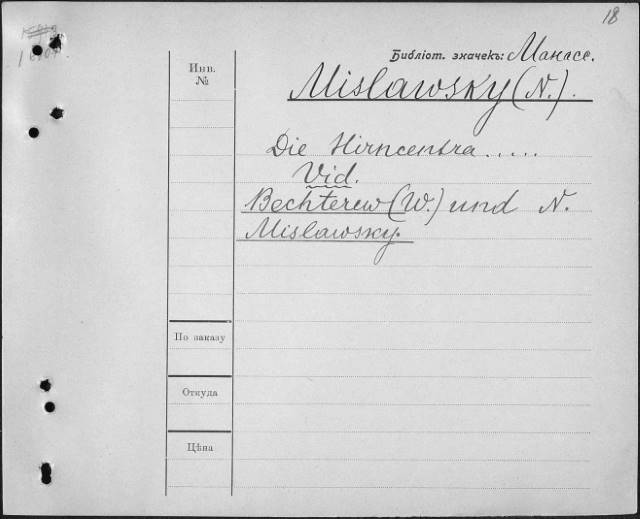 18
Библіот. значекъ: Манасс.
Инв.
№
Mislawsky (N.).
Die Hirncentra.....
Vid.
Bechterew (W.) und N.
Mislawsky.
По заказу
Откуда
Цѣна